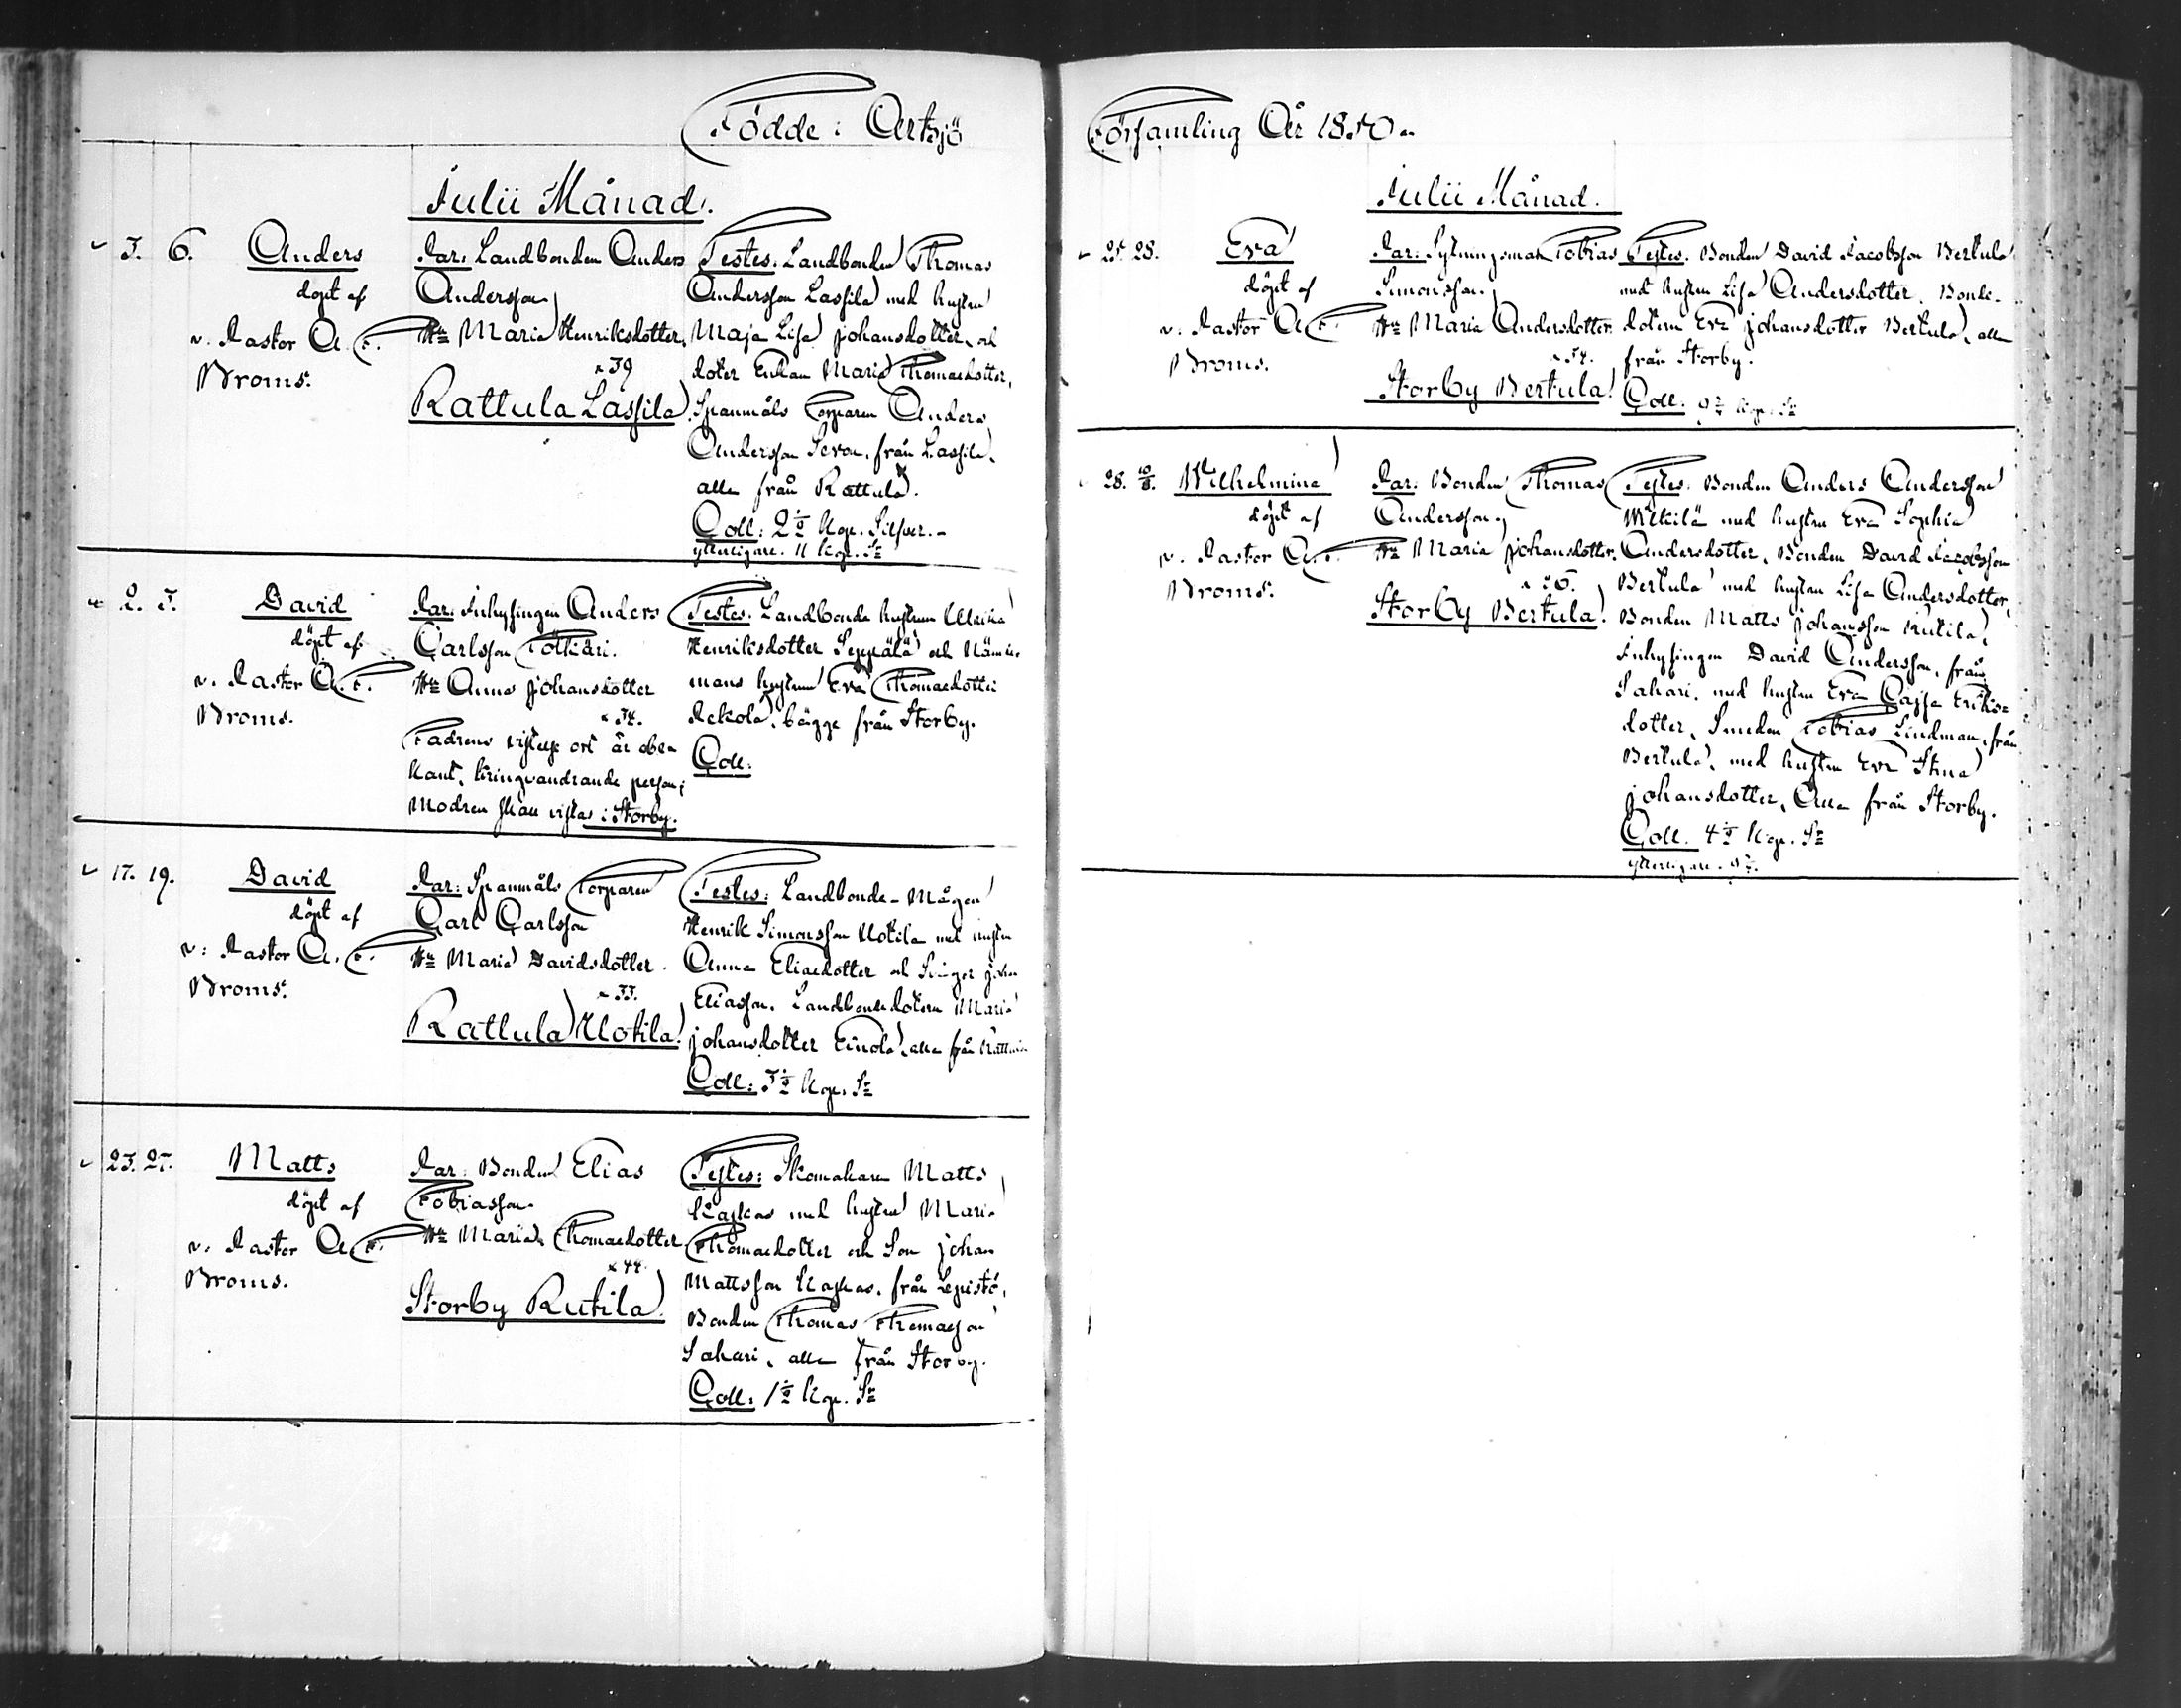 Födde i Artsjö
Julii Månad.
3. 6. Anders
döpt af
v. Pastor A. F.
Broms.
Par: Landbonden Anders
Andersson
Hu Maria Henriksdotter.
x 39
Rattula Lassila
Testes: Landbonden Thomas
Andersson Lassila med hustru
Maja Lisa Johansdotter, och
doter Enkan Maria Thomaedotter,
Spanmåls Torparen Anders
Andersson från Lassila,
alla från Rattula.
Coll: 2 1/2 Kop. Silfver.
ytterligare. 11 Kop. Sr
2. 5. David
döpt af
v. Pastor A. F.
Broms.
Par: Inhysingen Anders
Carlsson
Hu Anna Johansdotter
x 34.
Fadrens vistelse ort är obe-
kant, kringvandrande person;
Modren skall vistas i Storby.
Testes: Landbonde hustrun Ulrika
Henriksdotter Seppälä och Nämnde-
mans hustrun Eva Thomaedotter
bägge från Storby.
Coll:
17. 19. David
döpt af
v: Pastor A. F.
Broms.
Par: Spanmåls Torparen
Carl Carlsson
Hu Maria Davidsdotter.
x 33.
Rattula Uotila
Testes: Landbonde-Mågen
Henrik Simonsson Uotila med hustru
Anna Eliaedotter och Svåger Johan
Eliasson, Landbondedotern Maria
Johansdotter Einola, alla från Rattula
Coll: 3 1/2 Kop. Sr
23. 27. Matts
döpt af
v. Pastor A. F.
Broms.
Par: Bonden Elias
Tobiasson
Hu Maria Thomaedotter
x 44.
Storby Rutila
Testes: Skomakaren Matts
med hustru Maria
Thomaedotter och Son Johan
Mattsson från Lepistö,
Bonden Thomas Thomasson
Sahari, alla från Storby.
Coll: 1 1/2 Kop. Sr
Församling År 1850.
Julii Månad.
25. 28. Eva
döpt af
v. Pastor A. F.
Broms.
Par: Sytningsman Tobias
Simonsson
Hu Maria Andersdotter.
x 34.
Storby Bertula
Testes: Bonden David Jacobsson Bertula
med hustru Lisa Andersdotter, Bonde-
dotern Eva Johansdotter Bertula, alla
från Storby.
Coll: Kop. Sr
28. Wilhelmina
döpt af
v. Pastor A. F.
Broms.
Par: Bonden Thomas
Andersson
Hu Maria Johansdotter.
x 26.
Storby Bertula
Testes: Bonden Anders Andersson
Mikkilä med hustru Eva Sophia
Andersdotter, Bonden David Jacobsson
Bertula med hustru Lisa Andersdotter,
Bonden Matts Johansson Rutila,
Inhysingen David Andersson, från
Sahari, med hustru Eva Cajsa Eriks-
dotter, Smeden Tobias Lindman, från
Bertula, med hustru Eva Stina
Johansdotter, Alla från Storby.
Coll. 4 1/2 Kop. Sr
ytterligare